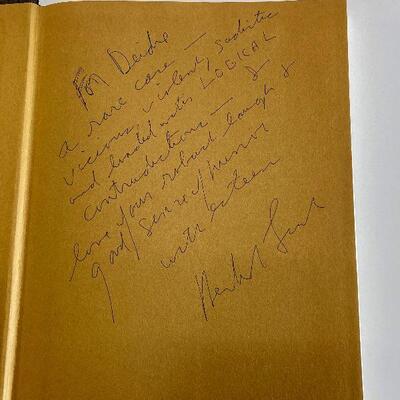 For Deidre
a rare case —
vicious, violent, sadistic
and loaded with LOGICAL
contradictions — I
love your robust laugh &
good sense of humor
with esteem
Herbert